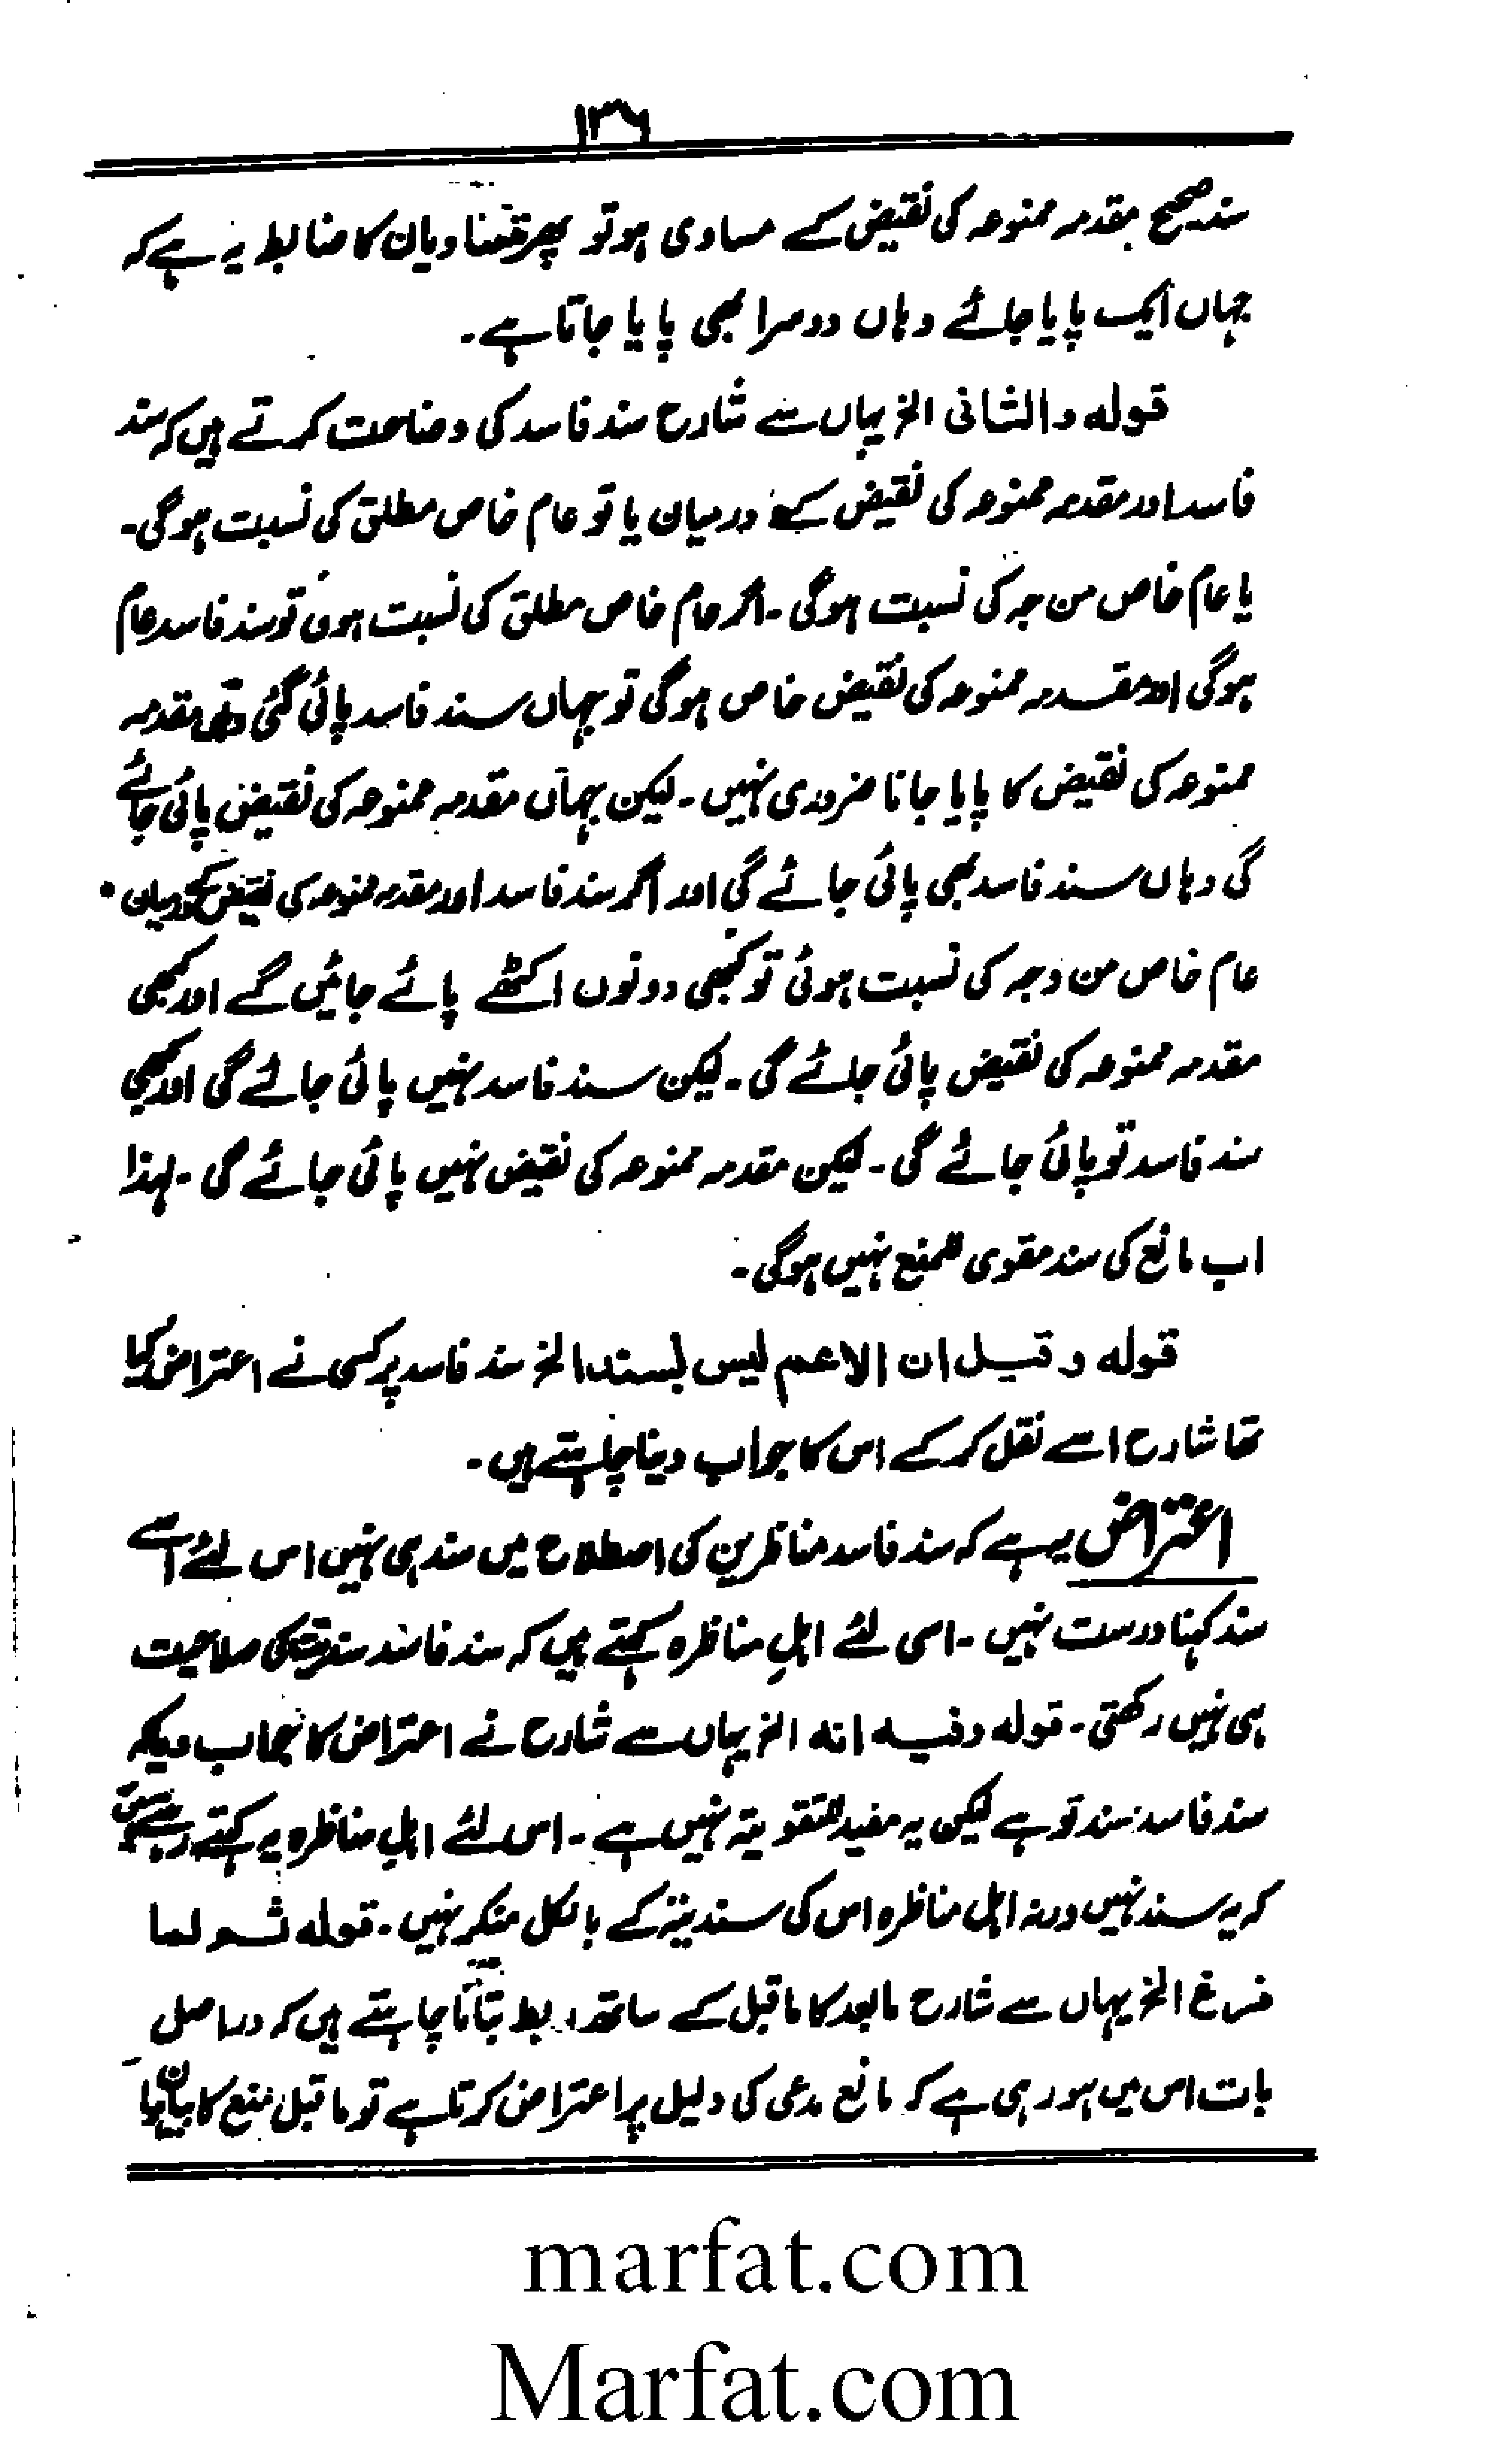 ۱۳۶
سند صحیح مقدمہ ممنوعہ کی نقیض کے مساوی ہو تو پھر متساویان کا ضابطہ یہ ہے کہ
جہاں ایک پایا جائے وہاں دوسرا بھی پایا جاتا ہے۔
قولہ والثانی الخ یہاں سے شارح سند فاسد کی وضاحت کرتے ہیں کہ سند
فاسد اور مقدمہ ممنوعہ کی نقیض کے درمیان یا تو عام خاص مطلق کی نسبت ہوگی۔
یا عام خاص من جہ کی نسبت ہوگی۔ اگر عام خاص مطلق کی نسبت ہوئی تو سند فاسد عام
ہوگی اور مقدمہ ممنوعہ کی نقیض خاص ہوگی تو جہاں سند فاسد پائی گئی وہاں مقدمہ
ممنوعہ کی نقیض کا پایا جانا ضروری نہیں۔ لیکن یہاں مقدمہ ممنوعہ کی نقیض پائی جائے
گی وہاں سند فاسد بھی پائی جائے گی اور اگر سند فاسد اور مقدمہ ممنوعہ کی نقیض کے درمیان
عام خاص من وجہ کی نسبت ہوئی تو کبھی دونوں اکٹھے پائے جائیں گے اور کبھی
مقدمہ ممنوعہ کی نقیض پائی جائے گی۔ لیکن سند فاسد نہیں پائی جائے گی اور کبھی
سند فاسد تو پائی جائے گی۔ لیکن مقدمہ ممنوعہ کی نقیض نہیں پائی جائے گی۔ لہذا
اب مانع کی سند مقوی للمنع نہیں ہوگی۔
قولہ وقیل ان الاعم لیس بسند الخ سند فاسد پر کسی نے اعتراض کیا
تھا شارح اسے نقل کر کے اس کا جواب دینا چاہتے ہیں۔
اعتراض یہ ہے کہ سند فاسد مناظرین کی اصطلاح میں سند ہی نہیں اس لئے اسے
سند کہنا درست نہیں۔ اسی لئے اہلِ مناظرہ کہتے ہیں کہ سند فاسد سندیت کی صلاحیت
ہی نہیں رکھتی۔ قولہ وفیہ انہ الخ یہاں سے شارح نے اعتراض کا جواب دیا کہ
سند فاسد سند تو ہے لیکن یہ مفید للتقویۃ نہیں ہے۔ اس لئے اہلِ مناظرہ یہ کہتے رہتے ہیں
کہ یہ سند نہیں ورنہ اہل مناظرہ اس کی سندیۃ کے بالکل منکر نہیں۔ قولہ ثم لما
فرغ الخ یہاں سے شارح مابعد کا ماقبل کے ساتھ ربط بتانا چاہتے ہیں کہ دراصل
بات اس میں ہو رہی ہے کہ مانع مدعی کی دلیل پر اعتراض کرتا ہے تو ماقبل منع کا بیان
marfat.com
Marfat.com